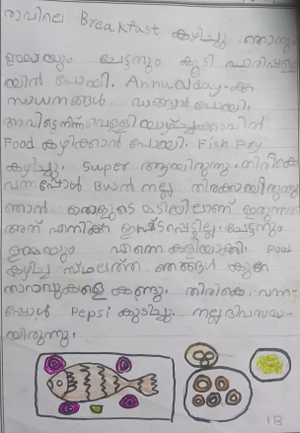 രാവിലെ Breakfast കഴിച്ചു ഞാനും
ഉമ്മയും ചേട്ടനും കൂടി
യിൽ പോയി. Annualday ക്ക
സാധനങ്ങൾ വാങ്ങാൻ പോയി.
അവിടെനിന്ന്
Food കഴിക്കാൻ പോയി. Fish Fry
കഴിച്ചു. Super ആയിരുന്നു. തിരികെ
വന്നപ്പോൾ Busൽ നല്ല തിരക്കായിരുന്നു
ഞാൻ മടിയിലാണ് ഇരുന്നത്
അത് എനിക്ക് ഇഷ്ടപ്പെട്ടില്ല. ചേട്ടനും
ഉമ്മയും എന്നെ കളിയാക്കി. Food
കഴിച്ച സ്ഥലത്ത് ഞങ്ങൾ കുറെ
താറാവുകളെ കണ്ടു. തിരികെ വന്ന-
പ്പോൾ Pepsi കുടിച്ചു. നല്ല ദിവസമാ-
യിരുന്നു.
18